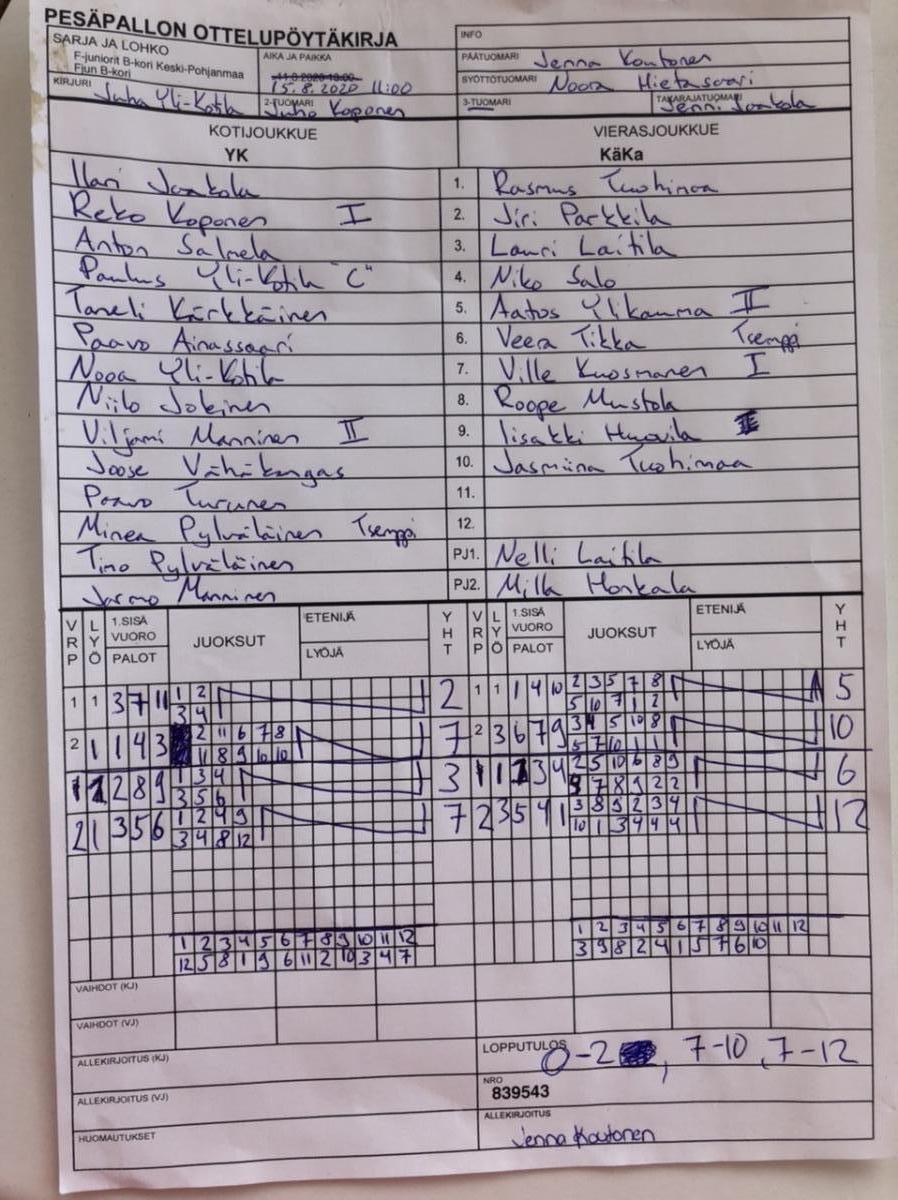 PESÄPALLON OTTELUPÖYTÄKIRJA
SARJA JA LOHKO
F-juniorit B-kori Keski-Pohjanmaa
Fjun B-kori
AIKA JA PAIKKA
11.8.2020 18:00
15.8.2020 11:00
KIRJURI Juha Yli-Kotila
2-TUOMARI Juho Koponen
INFO
PÄÄTUOMARI Jenna Koutonen
SYÖTTÖTUOMARI Noora Hietasaari
3-TUOMARI
TAKARAJATUOMARI Jenni Jaakola
KOTIJOUKKUE VIERASJOUKKUE
YK KäKa
Ilari Jaakola 1. Rasmus Tuohimaa
Reko Koponen I 2. Jiri Parkkila
Anton Salmela 3. Lauri Laitila
Paulus Yli-Kotila "C" 4. Niko Salo
Taneli Kärkkäinen 5. Aatos Ylikauma II
Paavo Ainassaari 6. Veera Tikka Tsemppi
Nooa Yli-Kotila 7. Ville Kuosmanen I
Niilo Jokinen 8. Roope Mustola
Viljami Manninen II 9. Iisakki Huovila
Joose Vähäkangas 10. Jasmiina Tuohimaa
Paavo Turunen 11.
Minea Pylväläinen Tsemppi 12.
Timo Pylväläinen PJ1. Nelli Laitila
Jarmo Manninen PJ2. Milla Honkala
VRP LYÖ 1.SISÄ VUORO PALOT JUOKSUT ETENIJÄ LYÖJÄ YHT VRP LYÖ 1.SISÄ VUORO PALOT JUOKSUT ETENIJÄ LYÖJÄ YHT
1 1 3 7 11 1 2 2 1 1 1 4 10 2 3 5 7 8 5
3 4 5 10 7 1 2
2 1 1 4 3 2 11 6 7 8 7 2 3 6 7 9 3 4 5 10 8 10
11 8 9 10 10 5 7 10 1 1
1 2 8 9 1 3 4 3 1 1 3 4 2 5 10 6 8 9 6
3 5 6 9 7 8 9 2 2
2 1 3 5 6 1 2 4 9 7 2 3 5 4 1 3 8 9 2 3 4 12
3 4 8 12 10 1 3 4 4 4
1 2 3 4 5 6 7 8 9 10 11 12 1 2 3 4 5 6 7 8 9 10 11 12
12 5 8 1 9 6 11 2 10 3 4 7 3 9 8 2 4 1 5 7 6 10
VAIHDOT (KJ)
VAIHDOT (VJ)
ALLEKIRJOITUS (KJ)
LOPPUTULOS 0-2, 7-10, 7-12
ALLEKIRJOITUS (VJ)
NRO
839543
HUOMAUTUKSET
ALLEKIRJOITUS
Jenna Koutonen